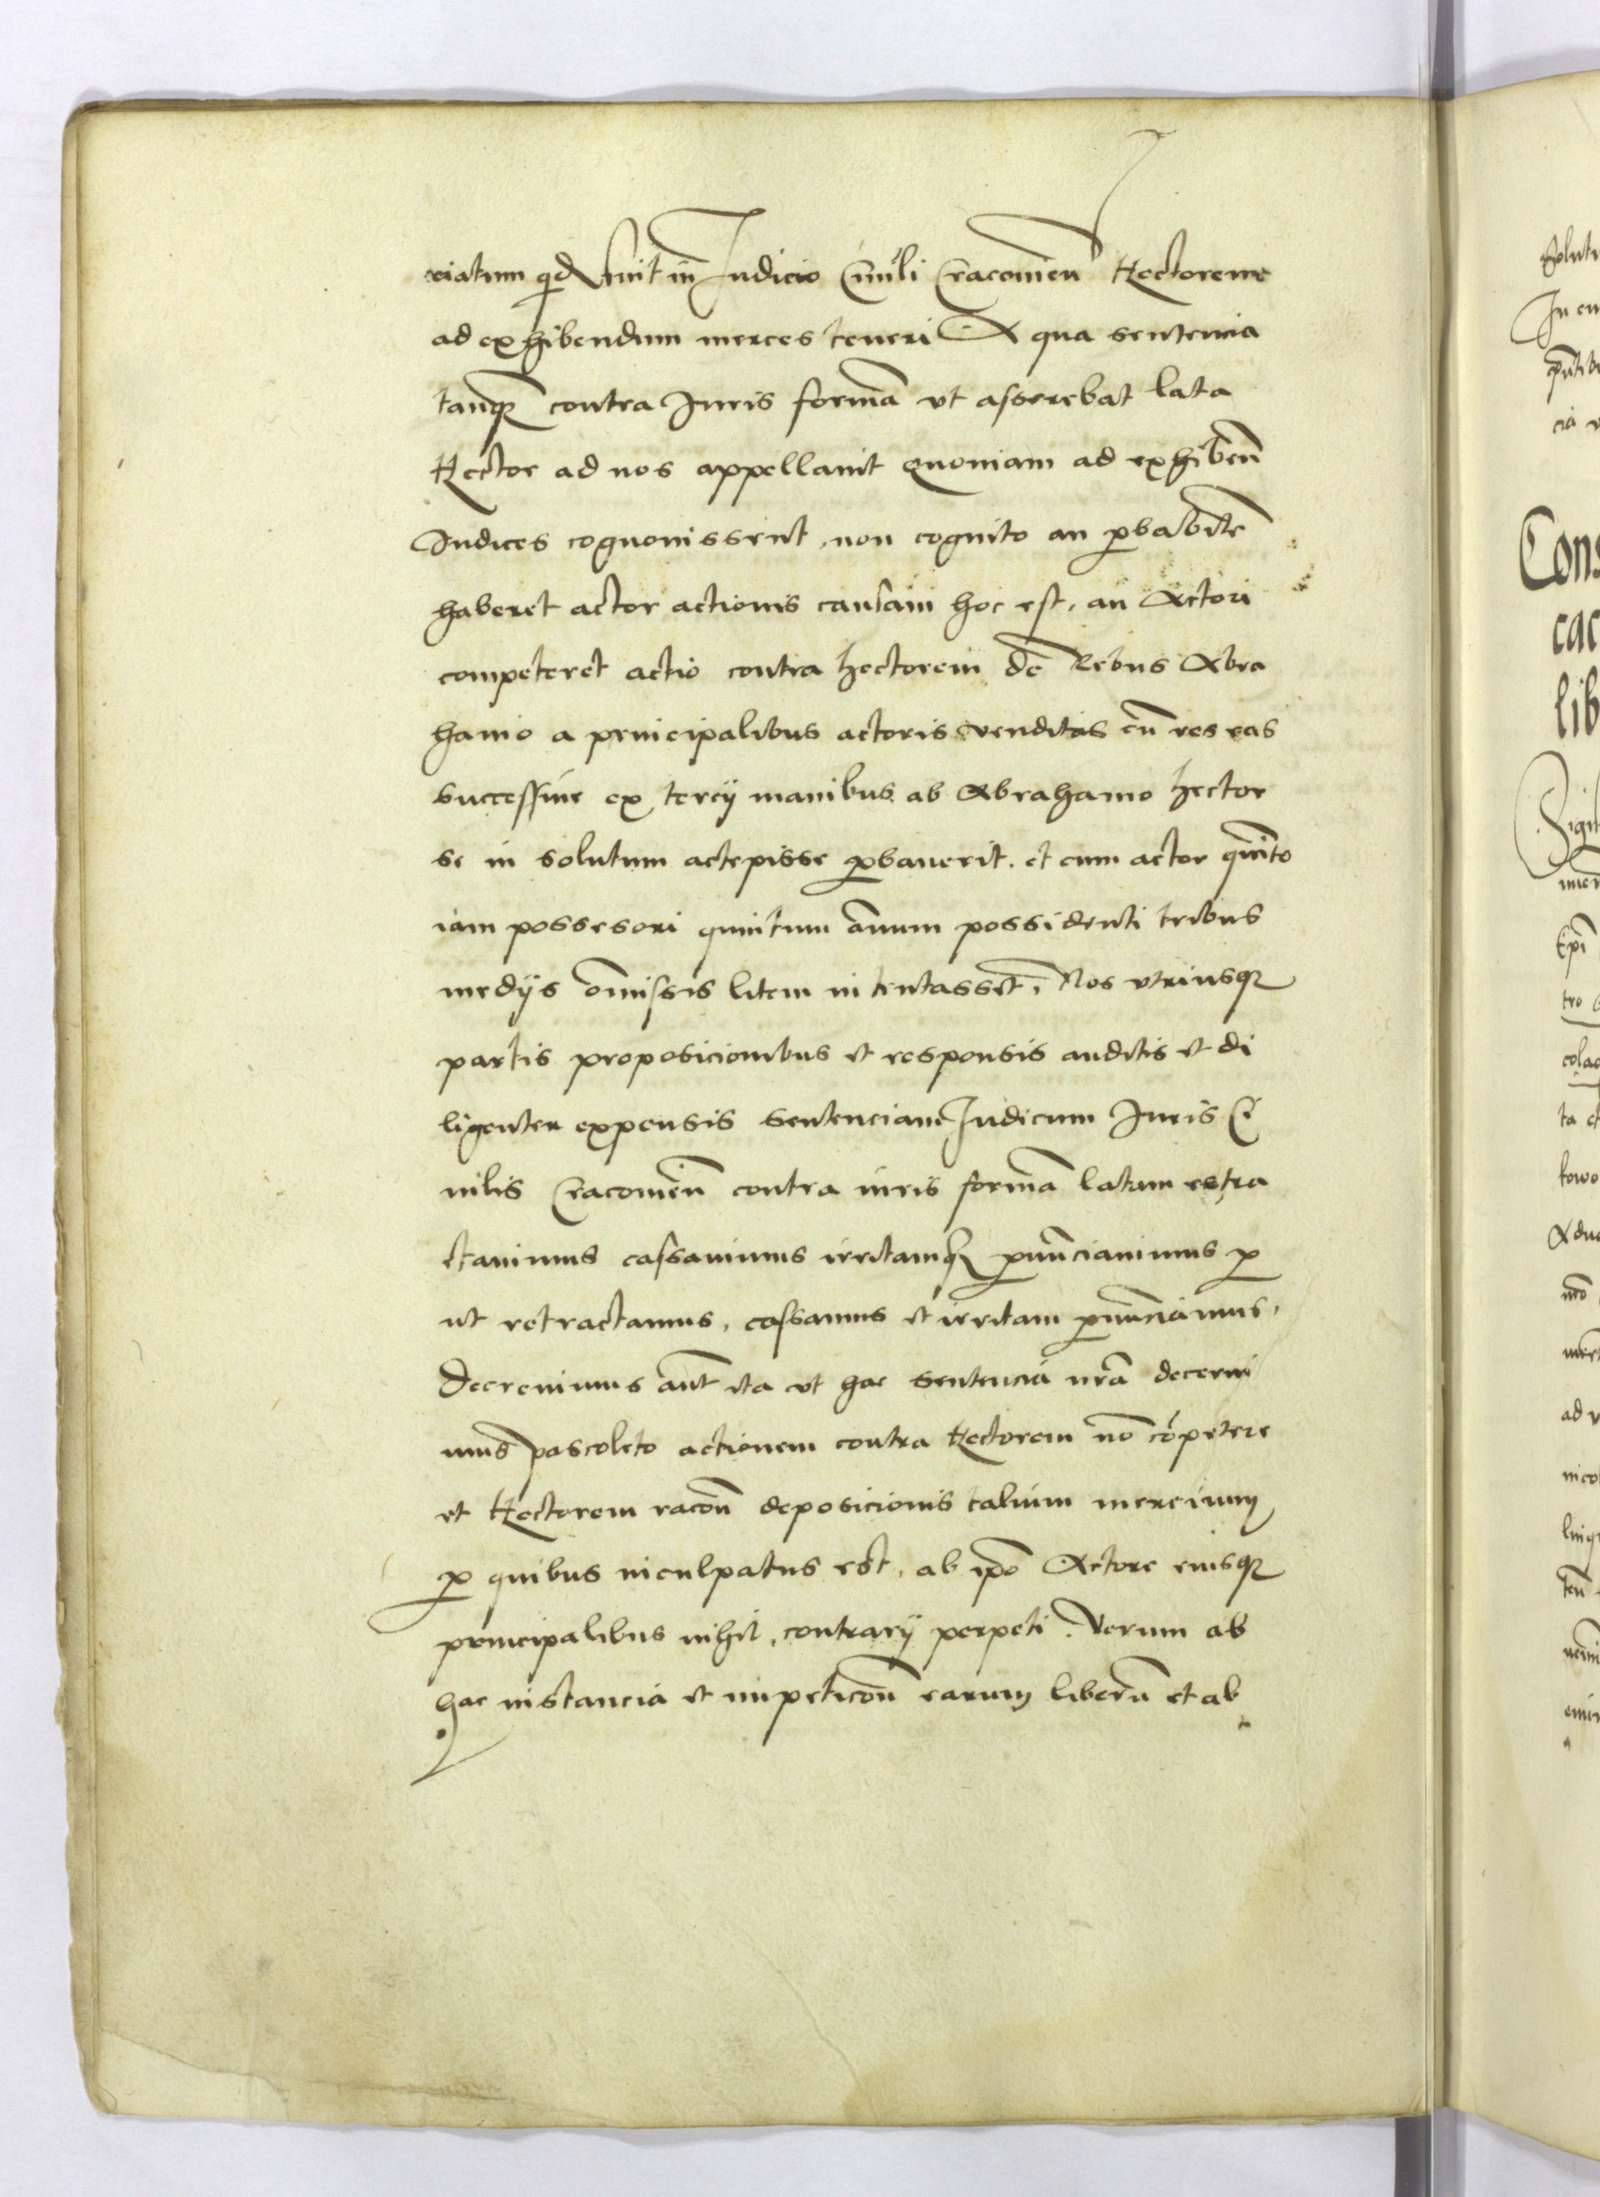 ciatum qd fuit in Judicio Ciuili Cracouien Hectorem
ad exhibendum merces teneri A qua sentencia
tanq contra Juris formā vt asserebat lata
Hector ad nos appellauit Quoniam ad exhibeñ
Judices cognouissent, non cognito an probabile
haberet actor actionis causam hoc est, an Actori
competeret actio contra hectorem de Rebus Abra
hamo a principalibus actoris venditis cū res eas
successiue ex tercij manibus ab Abrahamo hector
se in solutum accepisse probauerit. et cum actor quinto
iam possessori quintum annum possidenti tribus
medijs omissis litem intentasset, Nos vtriusq
partis proposicionibus et responsis auditis et di
ligenter expensis sentenciam Judicum Juris Ci
uilis Cracouien contra iuris formā latam retra
ctauimus cassauimus irritamq pronunciauimus p
ut retractamus, cassamus et irritam pronunciamus,
Decreuimus aut ita vt hac sentencia nrā decerni
mus pascoleto actionem contra Hectorem nō cōpetere
et Hectorem racōn deposicionis talium mercium
p quibus inculpatus est, ab ipō Actore eiusq
principalibus nihil, contrarij perpeti. Verum ab
hac instancia et impeticōn earum liberū et ab

Solut
In
Cons
cac
lib
Epi
tro
colac
ta et
kowo
ad
nico